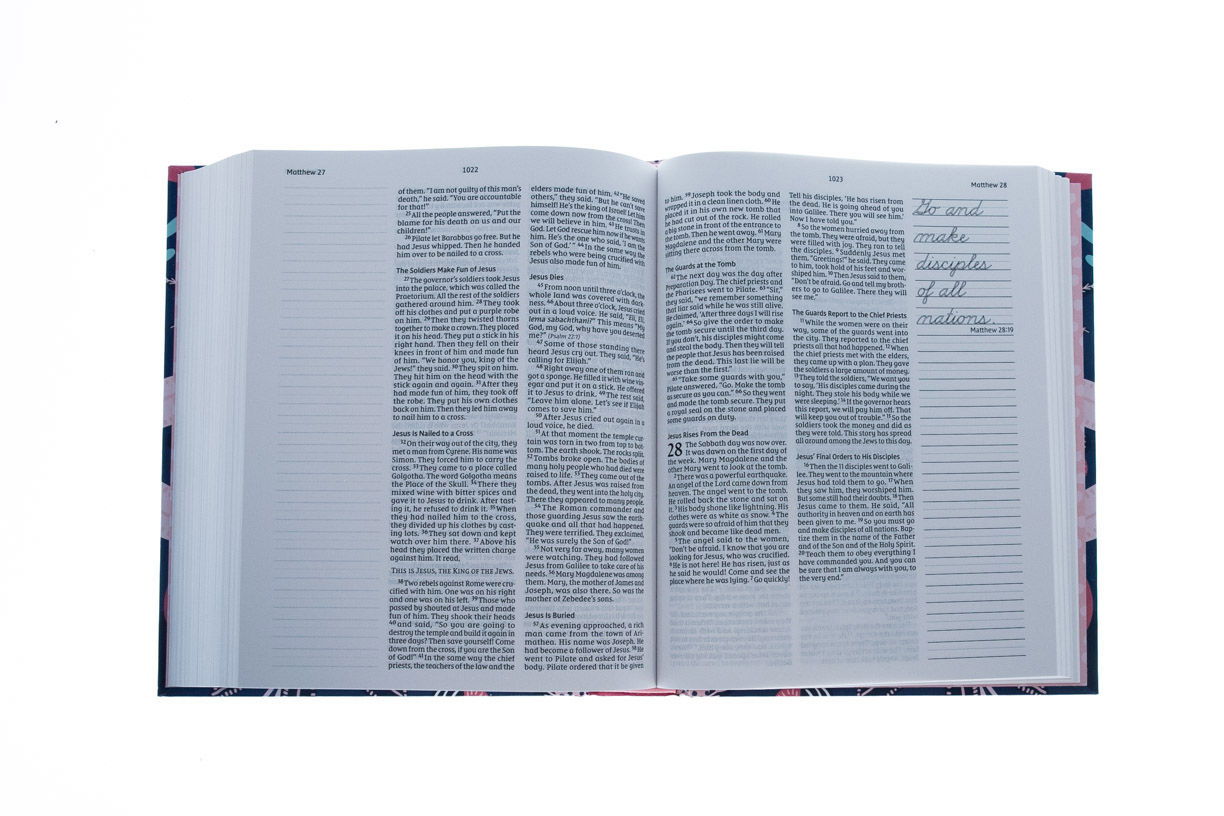 Matthew 27
1022
of them. "I am not guilty of this man's
death," he said. "You are accountable
for that!"
25 All the people answered, "Put the
blame for his death on us and our
children!"
26 Pilate let Barabbas go free. But he
had Jesus whipped. Then he handed
him over to be nailed to a cross.
The Soldiers Make Fun of Jesus
27 The governor's soldiers took Jesus
into the palace, which was called the
Praetorium. All the rest of the soldiers
gathered around him. 28 They took
off his clothes and put a purple robe
on him. 29 Then they twisted thorns
together to make a crown. They placed
it on his head. They put a stick in his
right hand. Then they fell on their
knees in front of him and made fun
of him. "We honor you, king of the
Jews!" they said. 30 They spit on him.
They hit him on the head with the
stick again and again. 31 After they
had made fun of him, they took off
the robe. They put his own clothes
back on him. Then they led him away
to nail him to a cross.
Jesus Is Nailed to a Cross
32 On their way out of the city, they
met a man from Cyrene. His name was
Simon. They forced him to carry the
cross. 33 They came to a place called
Golgotha. The word Golgotha means
the Place of the Skull. 34 There they
mixed wine with bitter spices and
gave it to Jesus to drink. After tast-
ing it, he refused to drink it. 35 When
they had nailed him to the cross,
they divided up his clothes by cast-
ing lots. 36 They sat down and kept
watch over him there. 37 Above his
head they placed the written charge
against him. It read,
THIS IS JESUS, THE KING OF THE JEWS.
38 Two rebels against Rome were cru-
cified with him. One was on his right
and one was on his left. 39 Those who
passed by shouted at Jesus and made
fun of him. They shook their heads
40 and said, "So you are going to
destroy the temple and build it again in
three days? Then save yourself! Come
down from the cross, if you are the Son
of God!" 41 In the same way the chief
priests, the teachers of the law and the
elders made fun of him. 42 "He saved
others," they said. "But he can't save
himself! He's the king of Israel! Let him
come down now from the cross! Then
we will believe in him. 43 He trusts in
God. Let God rescue him now if he wants
him. He's the one who said, 'I am the
Son of God.'" 44 In the same way the
rebels who were being crucified with
Jesus also made fun of him.
Jesus Dies
45 From noon until three o'clock, the
whole land was covered with dark-
ness. 46 About three o'clock, Jesus cried
out in a loud voice. He said, "Eli, Eli,
lema sabachthani?" This means "My
God, my God, why have you deserted
me?" (Psalm 22:1)
47 Some of those standing there
heard Jesus cry out. They said, "He's
calling for Elijah."
48 Right away one of them ran and
got a sponge. He filled it with wine vin-
egar and put it on a stick. He offered
it to Jesus to drink. 49 The rest said,
"Leave him alone. Let's see if Elijah
comes to save him."
50 After Jesus cried out again in a
loud voice, he died.
51 At that moment the temple cur-
tain was torn in two from top to bot-
tom. The earth shook. The rocks split.
52 Tombs broke open. The bodies of
many holy people who had died were
raised to life. 53 They came out of the
tombs. After Jesus was raised from
the dead, they went into the holy city.
There they appeared to many people.
54 The Roman commander and
those guarding Jesus saw the earth-
quake and all that had happened.
They were terrified. They exclaimed,
"He was surely the Son of God!"
55 Not very far away, many women
were watching. They had followed
Jesus from Galilee to take care of his
needs. 56 Mary Magdalene was among
them. Mary, the mother of James and
Joseph, was also there. So was the
mother of Zebedee's sons.
Jesus Is Buried
57 As evening approached, a rich
man came from the town of Ari-
mathea. His name was Joseph. He
had become a follower of Jesus. 58 He
went to Pilate and asked for Jesus'
body. Pilate ordered that it be given
1023
Matthew 28
to him. 59 Joseph took the body and
wrapped it in a clean linen cloth. 60 He
placed it in his own new tomb that
he had cut out of the rock. He rolled
a big stone in front of the entrance to
the tomb. Then he went away. 61 Mary
Magdalene and the other Mary were
sitting there across from the tomb.
The Guards at the Tomb
62 The next day was the day after
Preparation Day. The chief priests and
the Pharisees went to Pilate. 63 "Sir,"
they said, "we remember something
that liar said while he was still alive.
He claimed, 'After three days I will rise
again.' 64 So give the order to make
the tomb secure until the third day.
If you don't, his disciples might come
and steal the body. Then they will tell
the people that Jesus has been raised
from the dead. This last lie will be
worse than the first."
65 "Take some guards with you,"
Pilate answered. "Go. Make the tomb
as secure as you can." 66 So they went
and made the tomb secure. They put
a royal seal on the stone and placed
some guards on duty.
Jesus Rises From the Dead
28 The Sabbath day was now over.
It was dawn on the first day of
the week. Mary Magdalene and the
other Mary went to look at the tomb.
2 There was a powerful earthquake.
An angel of the Lord came down from
heaven. The angel went to the tomb.
He rolled back the stone and sat on
it. 3 His body shone like lightning. His
clothes were as white as snow. 4 The
guards were so afraid of him that they
shook and became like dead men.
5 The angel said to the women,
"Don't be afraid. I know that you are
looking for Jesus, who was crucified.
6 He is not here! He has risen, just as
he said he would! Come and see the
place where he was lying. 7 Go quickly!
Tell his disciples, 'He has risen from
the dead. He is going ahead of you
into Galilee. There you will see him.'
Now I have told you."
8 So the women hurried away from
the tomb. They were afraid, but they
were filled with joy. They ran to tell
the disciples. 9 Suddenly Jesus met
them. "Greetings!" he said. They came
to him, took hold of his feet and wor-
shiped him. 10 Then Jesus said to them,
"Don't be afraid. Go and tell my broth-
ers to go to Galilee. There they will
see me."
The Guards Report to the Chief Priests
11 While the women were on their
way, some of the guards went into
the city. They reported to the chief
priests all that had happened. 12 When
the chief priests met with the elders,
they came up with a plan. They gave
the soldiers a large amount of money.
13 They told the soldiers, "We want you
to say, 'His disciples came during the
night. They stole his body while we
were sleeping.' 14 If the governor hears
this report, we will pay him off. That
will keep you out of trouble." 15 So the
soldiers took the money and did as
they were told. This story has spread
all around among the Jews to this day.
Jesus' Final Orders to His Disciples
16 Then the 11 disciples went to Gali-
lee. They went to the mountain where
Jesus had told them to go. 17 When
they saw him, they worshiped him.
But some still had their doubts. 18 Then
Jesus came to them. He said, "All
authority in heaven and on earth has
been given to me. 19 So you must go
and make disciples of all nations. Bap-
tize them in the name of the Father
and of the Son and of the Holy Spirit.
20 Teach them to obey everything I
have commanded you. And you can
be sure that I am always with you, to
the very end."
Go and
make
disciples
of all
nations.
Matthew 28:19